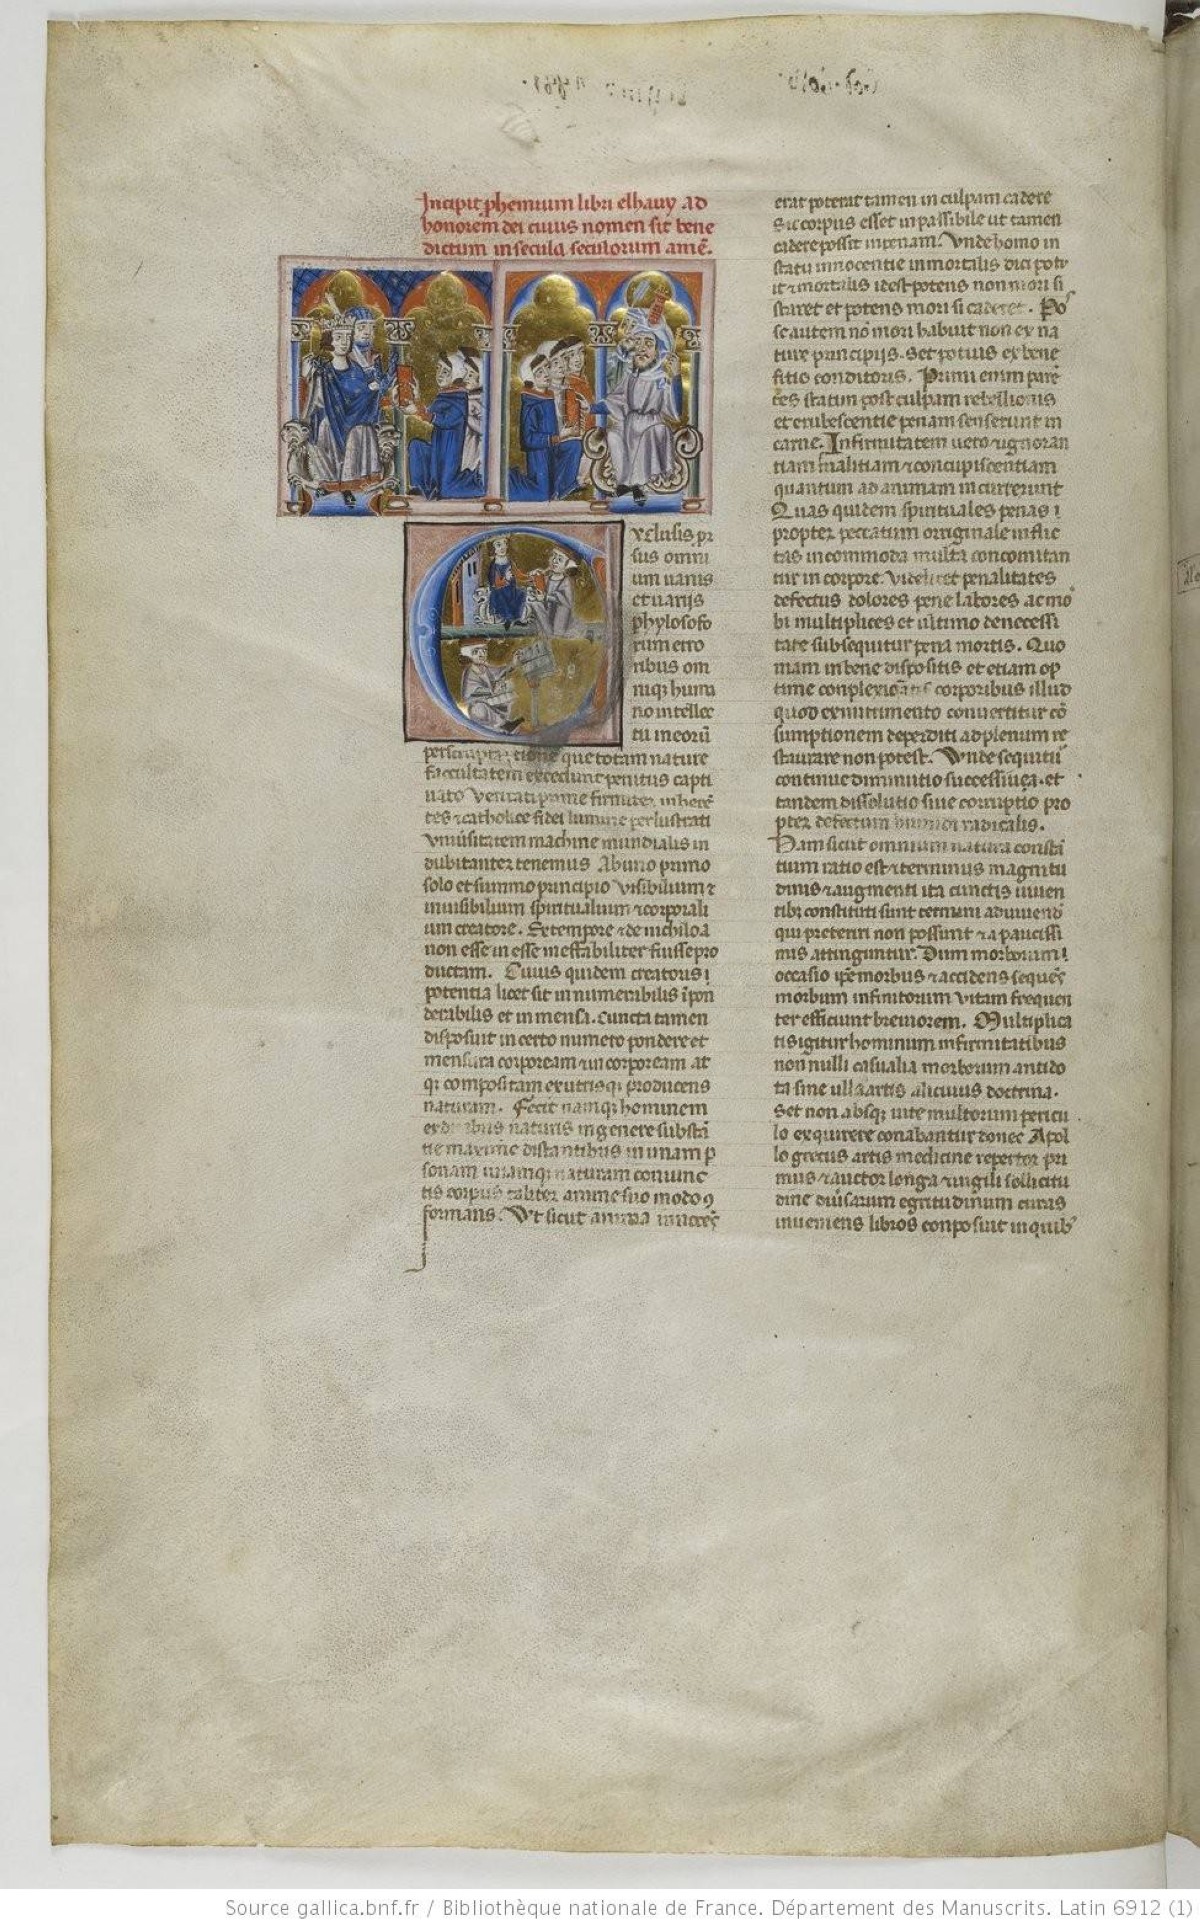 Incipit phemium libri elhauy ad
honorem dei cuius nomen sit bene
dictum in secula seculorum amē.
xclusis pr
sus omni
um uanis
et uarijs
phylosofo
rum erro
ribus om
niq; huma
no intellec
tu in eorū
perscruptatione que totam nature
facultatem excedunt penitus capti
uato veritati prime firmiter inherē
tes ⁊ catholice fidei lumine perlustrati
vniūsitatem machine mundialis in
dubitanter tenemus Ab uno primo
solo et summo principio visibilium ⁊
inuisibilium spiritualium ⁊ corporali
um creatore. Ex tempore ⁊ de nichilo a
non esse in esse ineffabiliter fuisse pro
ductam. Cuius quidem creatoris ⁊
potentia licet sit innumerabilis īpon
derabilis et inmensa. cuncta tamen
disposuit in certo numero pondere et
mensura corpoream ⁊ incorpoream at
q; compositam ex utrisq; producens
naturam. Fecit namq; hominem
ex duabus naturis in genere substā
tie maxime distantibus in unam p
sonam unamq; naturam coniunc
tis corpus taliter anime suo modo ꝯ
formans. Vt sicut anima innocēs
erat poterat tamen in culpam cadere
Sic corpus esset inpassibile ut tamen
cadere possit in penam. Vnde homo in
statu innocentie inmortalis dici pote
it ⁊ mortalis idest potens non mori si
staret et potens mori si caderet. Po
se autem nō mori habuit non ex na
ture principijs. Set potius ex bene
fitio conditoris. Primi enim parē
tes statim post culpam rebellionis
et erubescentie penam senserunt in
carne. Infirmitatem uero ⁊ ignoran
tiam malitiam ⁊ concupiscentiam
quantum ad animam incurrerunt
Quas quidem spirituales penas
propter peccatum originale inflic
tas incommoda multa concomitan
tur in corpore. Videlicet penalitates
defectus dolores pene labores ac mo
bi multiplices et ultimo de necessi
tate subsequitur pena mortis. Quo
niam in bene dispositis et etiam op
time conplexionatis corporibus illud
quod ex nutrimento conuertitur cō
sumptionem deperditi ad plenum re
staurare non potest. Vnde sequitū
continue diminutio successiua. et
tandem dissolutio siue corruptio pro
pter defectum humidi radicalis.
Nam sicut omnium natura consta
tium ratio est ⁊ terminus magnitu
dinis ⁊ augmenti ita cunctis uiuen
tibꝫ constituti sunt termini ad uiuend
qui preteriri non possunt ⁊ a paucissi
mis attinguntur. Dum morborum
occasio ipē morbus ⁊ accidens sequēs
morbum infinitorum vitam frequen
ter efficiunt breuiorem. Multiplica
tis igitur hominum infirmitatibus
non nulli casualia morborum antido
ta sine ulla artis alicuius doctrina.
Set non absq; uite multorum pericu
lo exquirere conabantur donec Apol
lo grecus artis medicine repertor pri
mus ⁊ auctor longa ⁊ uigili sollicitu
dine diūsarum egritudinum curas
inueniens libros conposuit in quibꝫ
Source gallica.bnf.fr / Bibliothèque nationale de France. Département des Manuscrits. Latin 6912 (1)